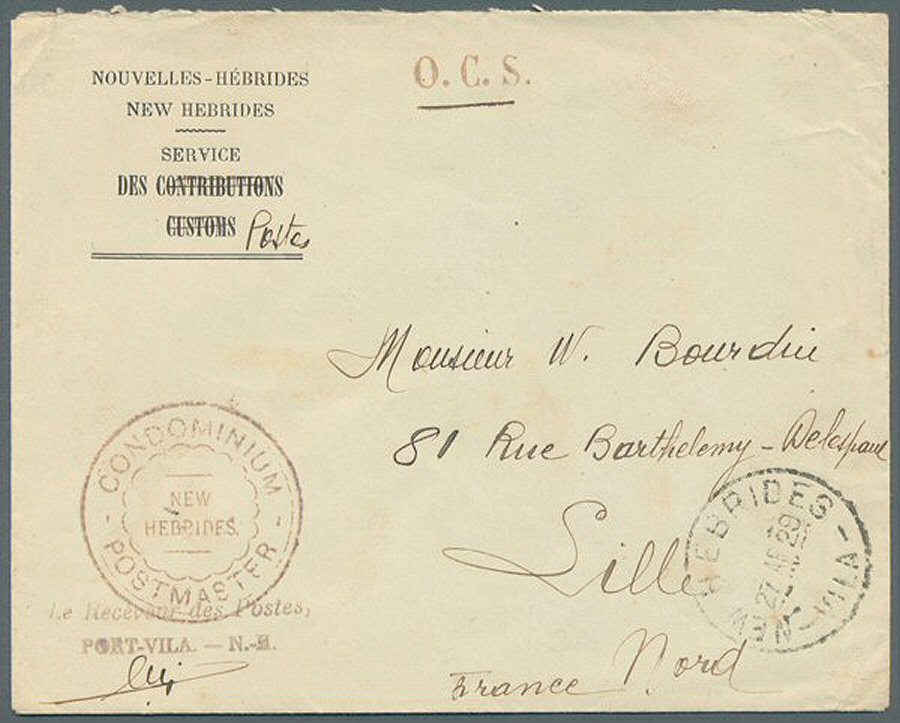 NOUVELLES-HÉBRIDES
NEW HEBRIDES
SERVICE
DES CONTRIBUTIONS
CUSTOMS Postes
O.C.S.
Monsieur W. Bourdin
81 Rue Barthelemy-Delespaul
Lille
Nord
France
CONDOMINIUM
NEW
HEBRIDES.
POSTMASTER
Le Receveur des Postes,
PORT-VILA. — N.-H.
HEBRIDES -
27 29
VILA